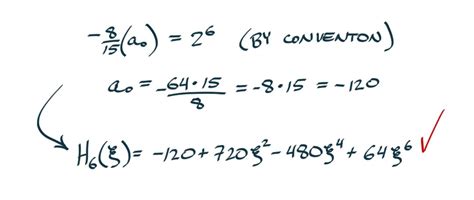 -8/15(a₀) = 2⁶ (BY CONVENTON)
a₀ = -64·15/8 = -8·15 = -120
H₆(ξ) = -120 + 720ξ² - 480ξ⁴ + 64ξ⁶ ✓